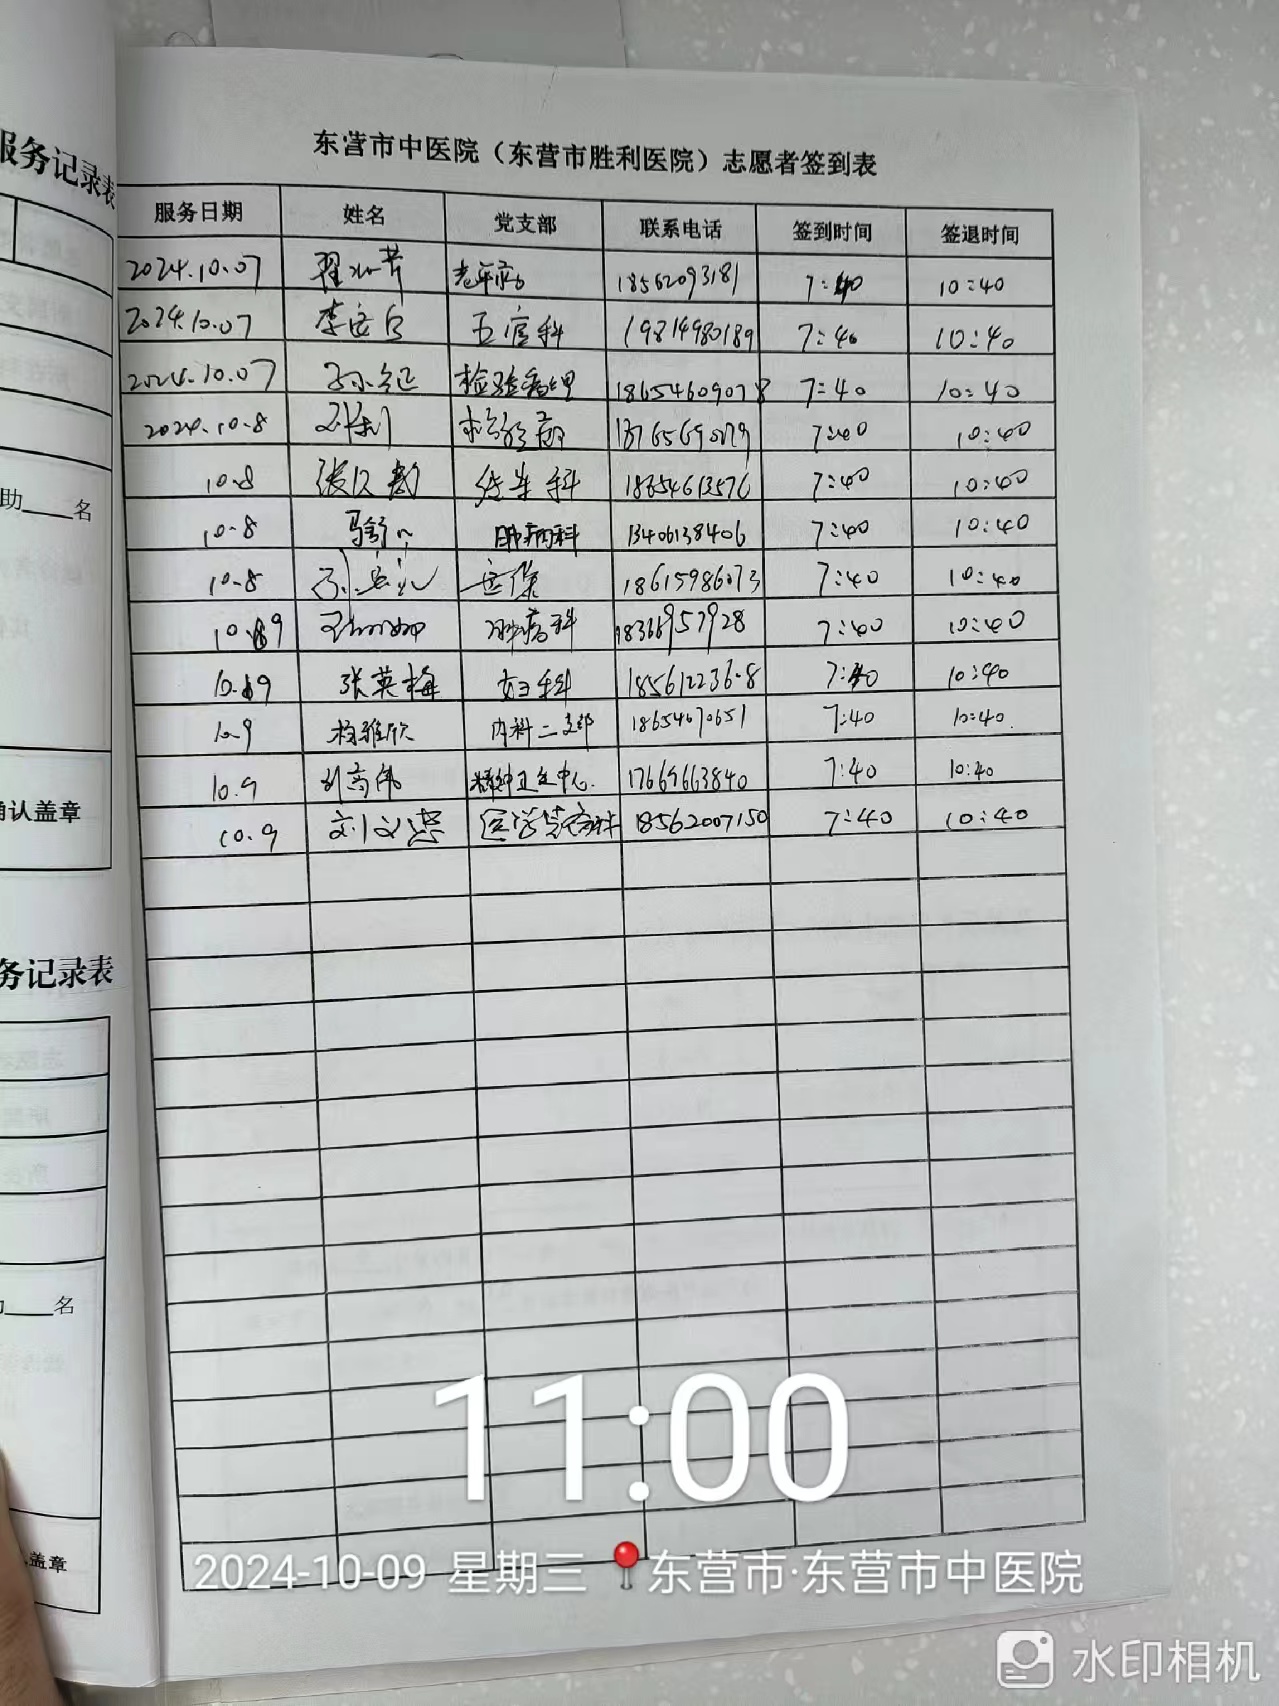 服务记录表
助____名
确认盖章
务记录表
____名
盖章
东营市中医院（东营市胜利医院）志愿者签到表
服务日期 姓名 党支部 联系电话 签到时间 签退时间
2024.10.07 老年病 18562093181 7:40 10:40
2024.10.07 五官科 19814980189 7:40 10:40
2024.10.07 检验病理 18654609078 7:40 10:40
2024.10.8 检验病 7:40 10:40
10.8 7:40 10:40
10.8 肺病科 13406138406 7:40 10:40
10.8 医保 18615986073 7:40 10:40
10.9 肺病科 18366957928 7:40 10:40
10.9 张英梅 妇科 7:40 10:40
10.9 杨雅欣 内科二支部 18654670651 7:40 10:40.
10.9 刘高伟 精神卫生中心. 17669663840 7:40 10:40
10.9 刘文慧 18562007150 7:40 10:40
11:00
2024-10-09 星期三 东营市·东营市中医院
水印相机